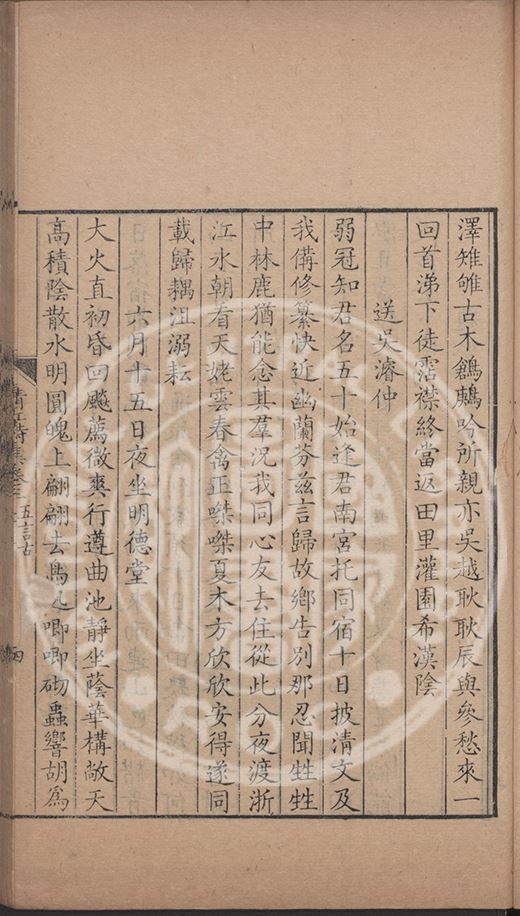 澤雉雊古木鶹鷅吟所親亦吳越耿耿辰與參愁來一
回首涕下徒霑襟終當返田里灌園希漢陰
送吳濬仲
弱冠知君名五十始逢君南宮托同宿十日披清文及
我備修纂快近幽蘭芬茲言歸故鄉告別那忍聞甡甡
中林鹿猶能念其羣況我同心友去住從此分夜渡浙
江水朝看天姥雲春禽正喋喋夏木方欣欣安得遂同
載歸耦沮溺耘
六月十五日夜坐明德堂
大火直初昏回飈薦微爽行遵曲池靜坐蔭華構敞天
高積陰散水明圓魄上翩翩去鳥
唧唧砌蟲響胡爲
清江詩集卷
五言古